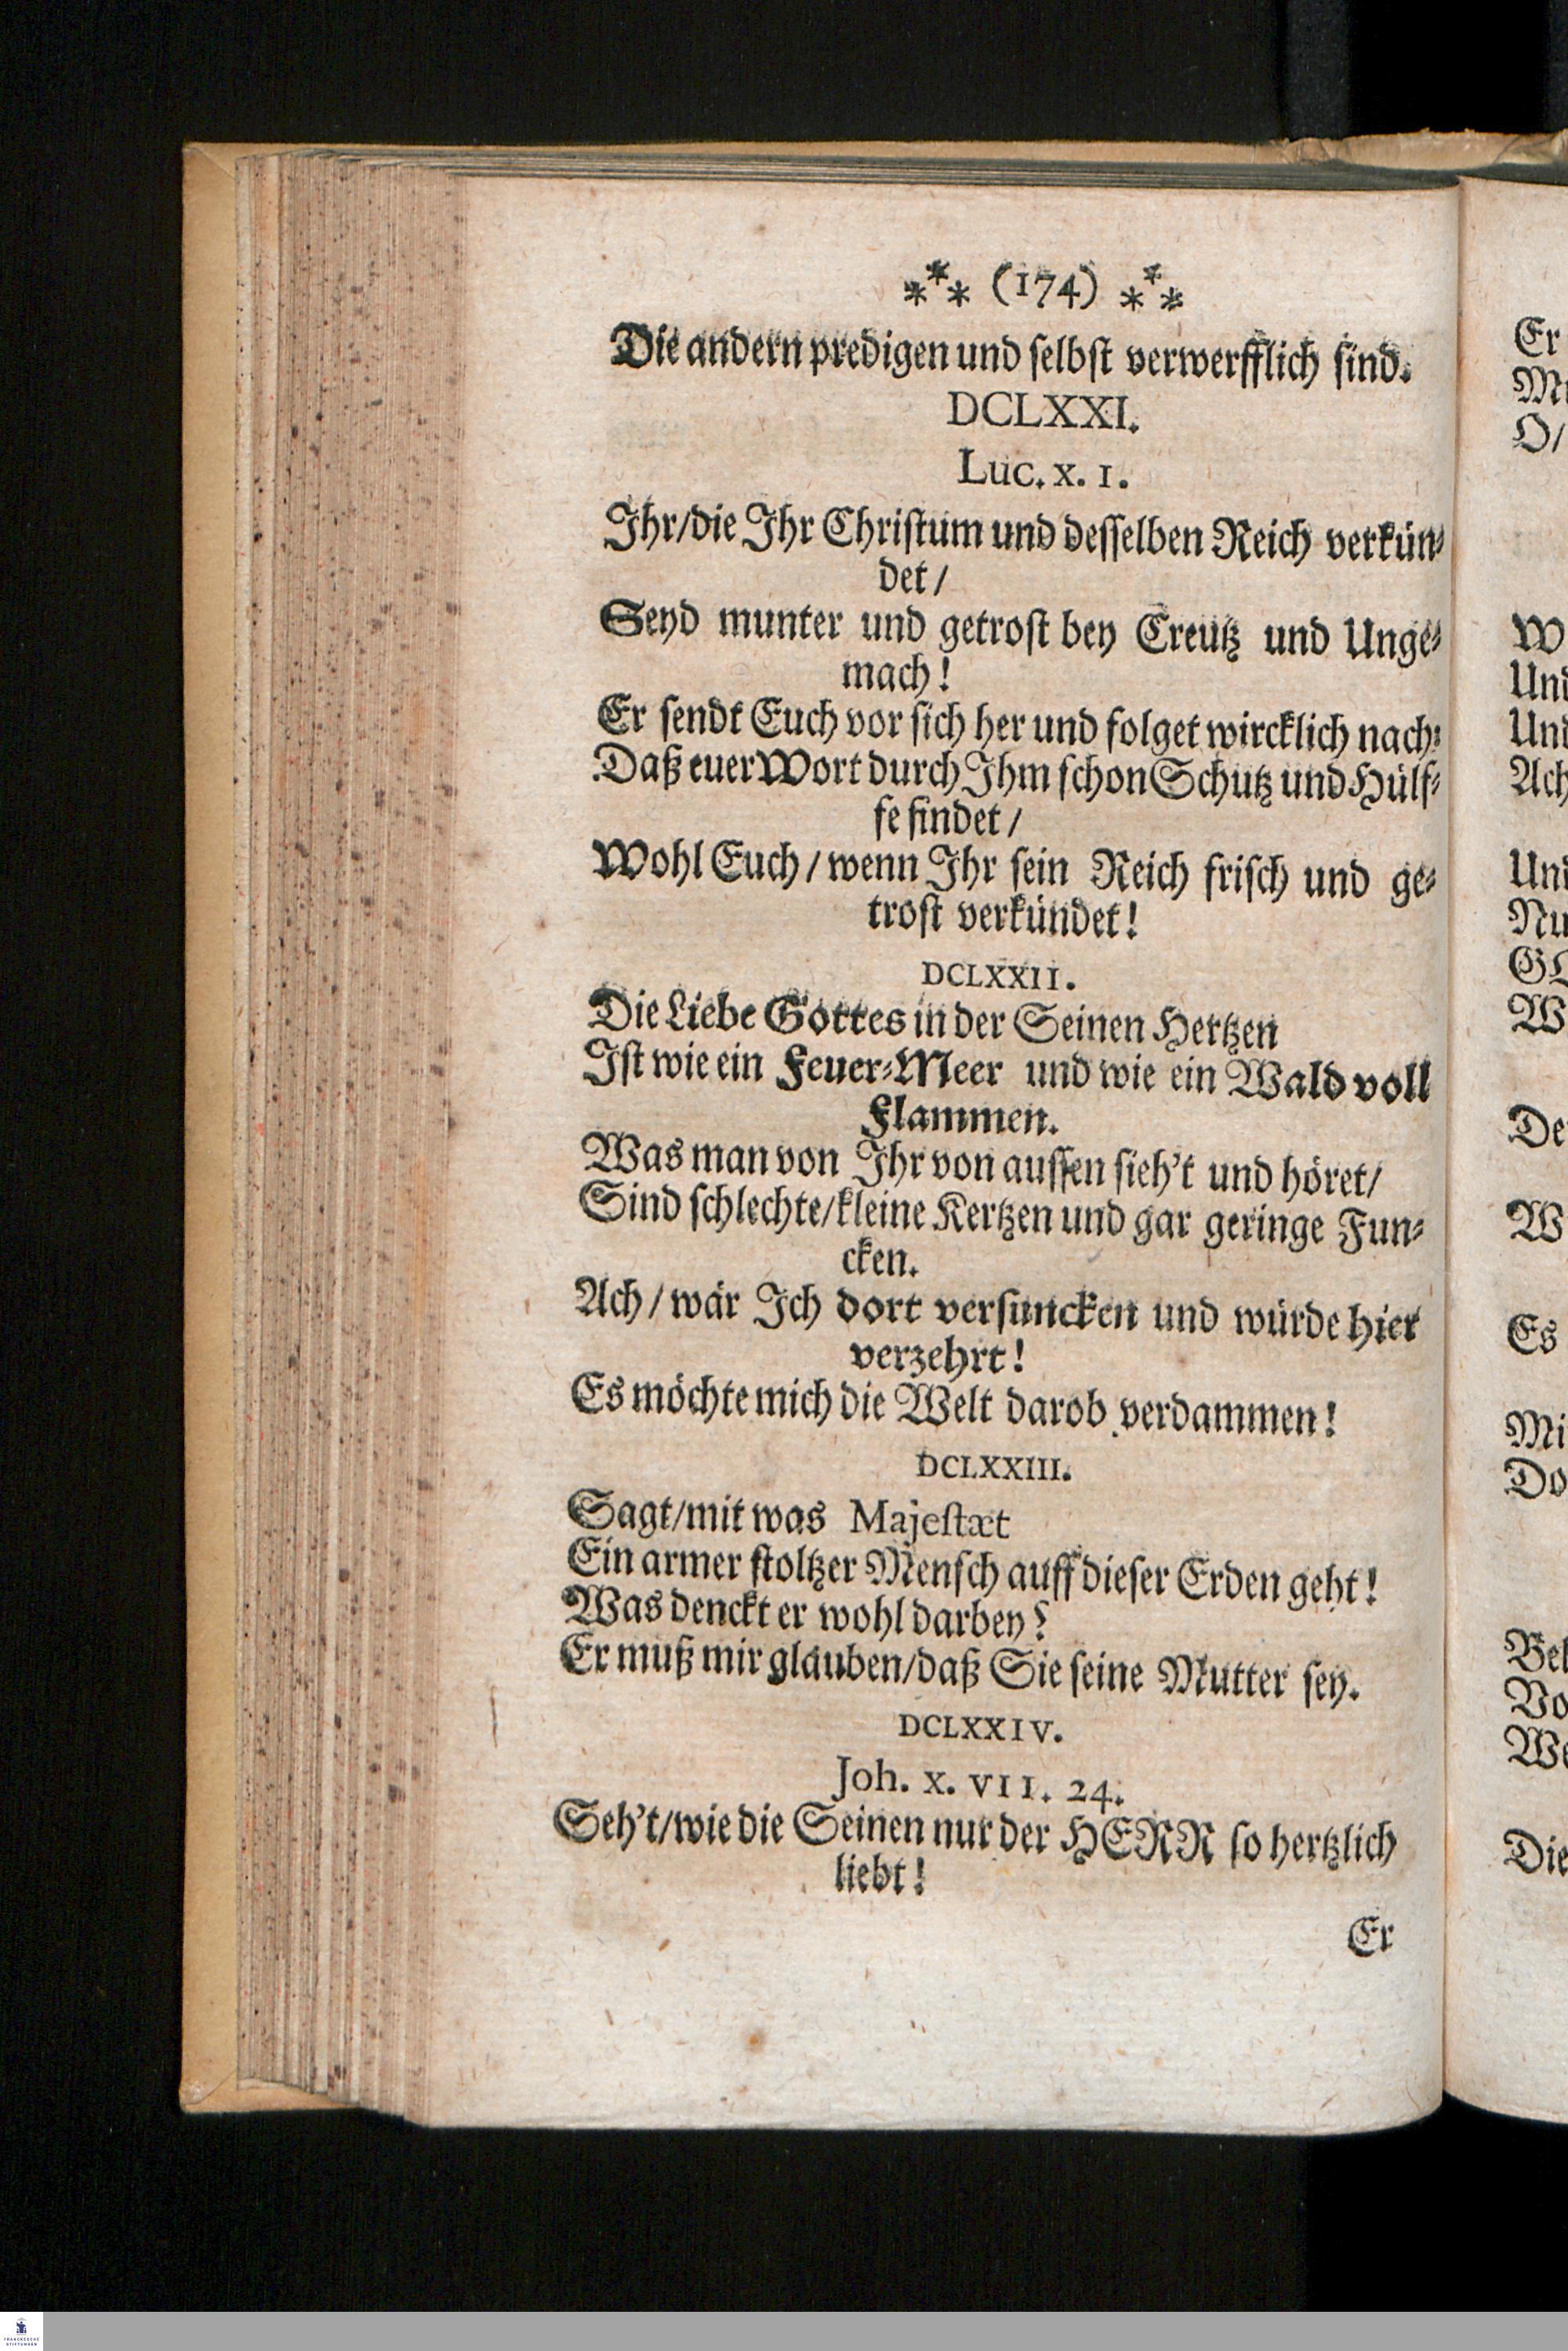 ⁂ (174) ⁂
Die andern predigen und ſelbſt verwerfflich ſind.
DCLXXI.
Luc. x. 1.
Ihr/die Ihr Chriſtum und deſſelben Reich verkün⸗
det/
Seyd munter und getroſt bey Creutz und Unge⸗
mach!
Er ſendt Euch vor ſich her und folget wircklich nach:
Daß euer Wort durch Ihm ſchon Schutz und Hülf⸗
fe findet/
Wohl Euch/wenn Ihr ſein Reich friſch und ge⸗
troſt verkündet!
DCLXXII.
Die Liebe Gottes in der Seinen Hertzen
Iſt wie ein Feuer⸗Meer und wie ein Wald voll
Flammen.
Was man von Ihr von auſſen ſieh't und höret/
Sind ſchlechte/kleine Kertzen und gar geringe Fun⸗
cken.
Ach/wär Ich dort verſuncken und würde hier
verzehrt!
Es möchte mich die Welt darob verdammen!
DCLXXIII.
Sagt/mit was Majeſtæt
Ein armer ſtoltzer Menſch auff dieſer Erden geht!
Was denckt er wohl darbey?
Er muß mir gläuben/daß Sie ſeine Mutter ſey.
DCLXXIV.
Joh. x. VII. 24.
Seh't/wie die Seinen nur der HERR ſo hertzlich
liebt!
Er
Er
O/
W
Und
Und
Ach
W
W
Es
Die
FRANCKESCHE
STIFTUNGEN